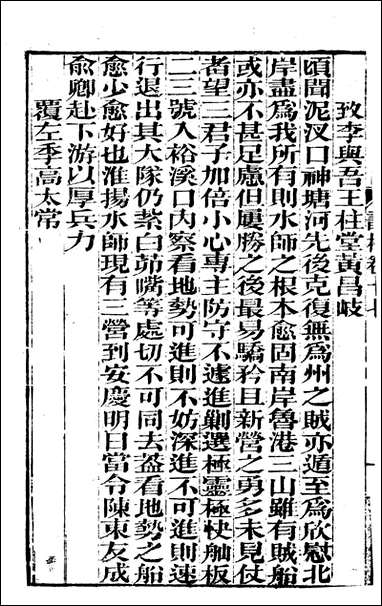 致李與吾王柱堂黃昌岐
頃聞泥汊口神塘河先後克復無為州之賊亦遁至為欣慰北
岸盡為我所有則水師之根本愈固南岸魯港三山雖有賊船
或亦不甚足慮但屢勝之後最易驕矜且新營之勇多未見仗
者望三君子加倍小心專主防守不遽進剿選極靈極快舢板
二三號入裕溪口內察看地勢可進則不妨深進不可進則速
行退出其大隊仍紮白茆嘴等處切不可同去蓋看地勢之船
愈少愈好也淮揚水師現有三營到安慶明日當令陳東友成
俞卿赴下游以厚兵力
覆左季高太常